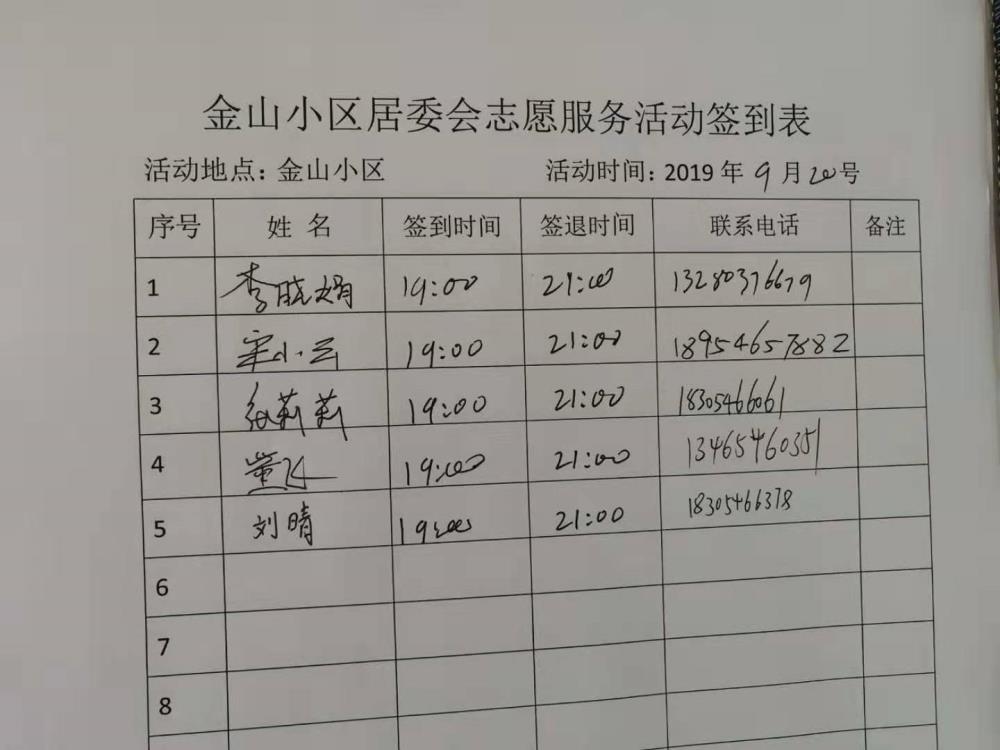 金山小区居委会志愿服务活动签到表
活动地点：金山小区 活动时间：2019年9月20号
序号 姓名 签到时间 签退时间 联系电话 备注
1 李晓娟 19:00 21:00 13280376679
2 宋小云 19:00 21:00 18954657882
3 张莉莉 19:00 21:00 18305466061
4 董飞 19:00 21:00 13465460351
5 刘晴 19:00 21:00 18305466378
6
7
8